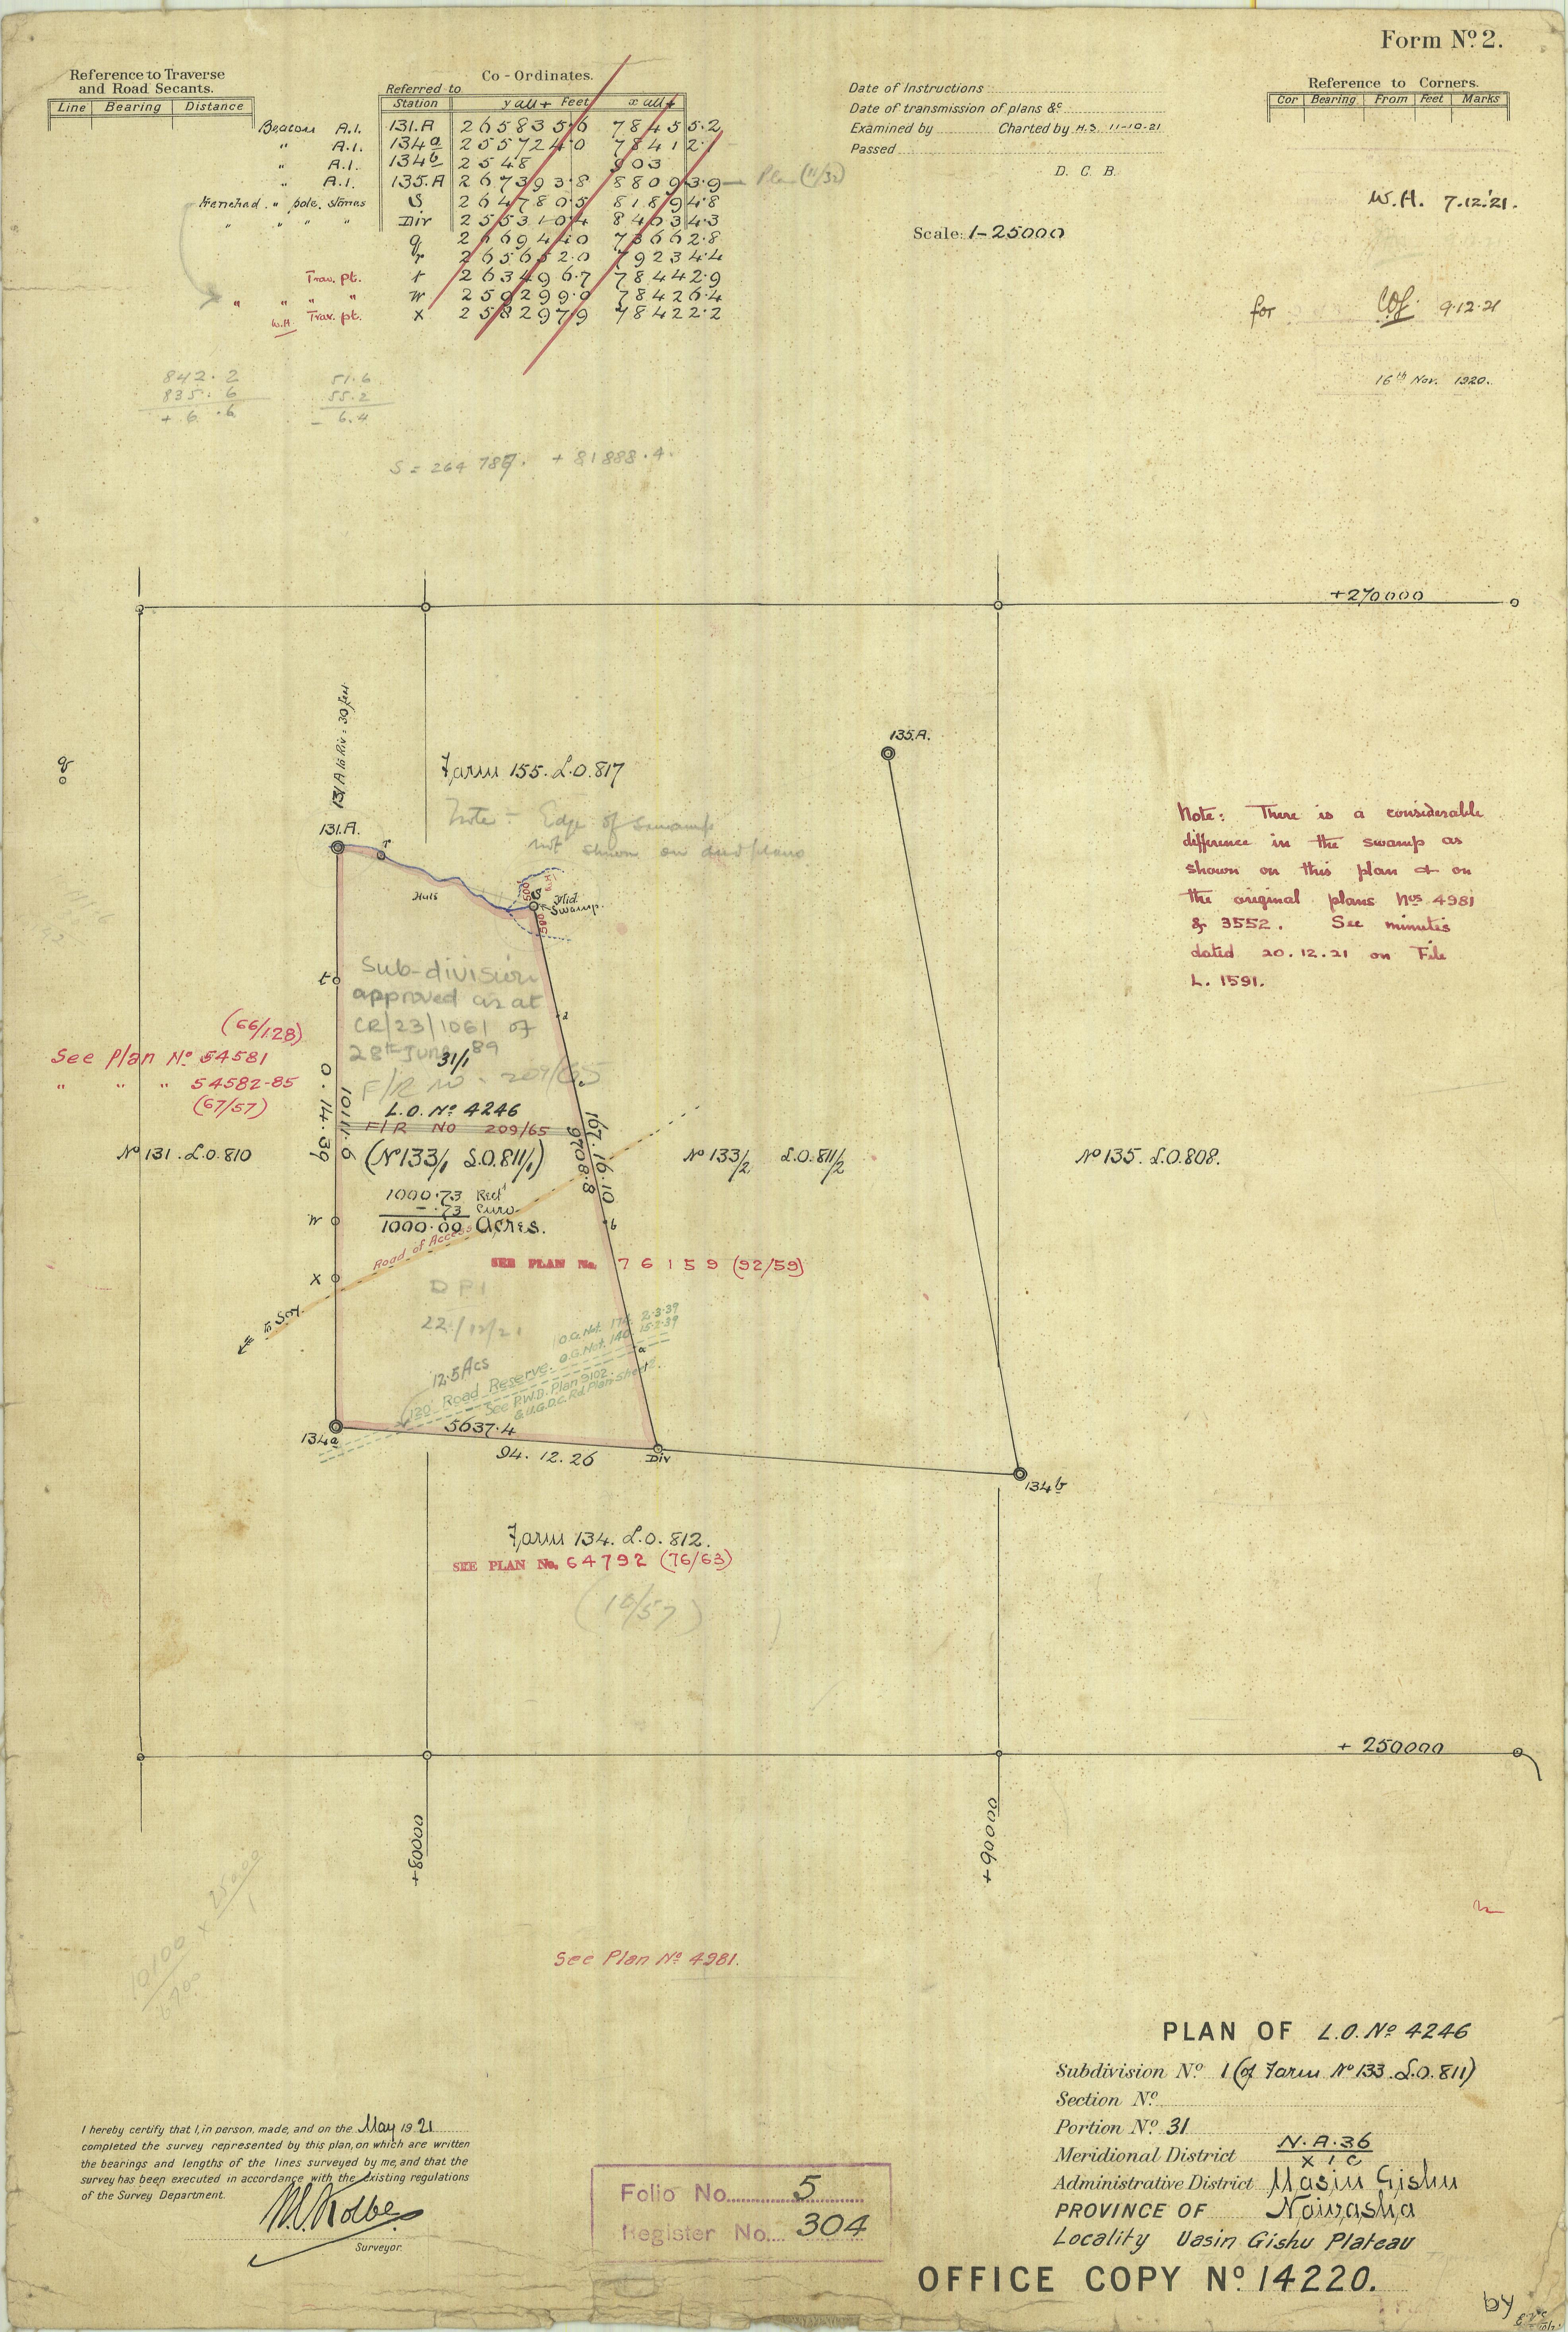 Form Nº 2.
Reference to Traverse
and Road Secants.
Line Bearing Distance
Co-Ordinates.
Referred to
Station y all + Feet x all +
Beacon A.I. 131.A 265835.6 78455.2
" A.I. 134a 255724.0 78412.1
" A.I. 134b 2548 903
" A.I. 135.A 267393.8 88093.9 Plan (11/32)
Trenched " pole. stones S 264780.5 81894.8
" " " " Div 255310.4 84034.3
q 266944.0 73662.8
r 265652.0 79234.4
Trav. pt. t 263496.7 78442.9
" " " " W 259299.0 78426.4
W.H. Trav. pt. X 258297.9 78422.2
Date of Instructions
Date of transmission of plans &c
Examined by Charted by H.S. 11-10-21
Passed
D. C. B.
Scale: 1-25000
Reference to Corners.
Cor Bearing From Feet Marks
W.H. 7.12.'21.
for 9.12.21
16th Nov. 1920.
842.2
835.6
+ 6.6
51.6
55.2
- 6.4
S = 264 787. + 81888.4.
+270000
q
131 A to Riv: 30 feet
135.A.
Farm 155. L.O. 817
Note - Edge of Swamp
not shown on deed plans
131.A.
r
Huts
S
Mid.
Swamp.
Note: There is a considerable
difference in the swamp as
shown on this plan & on
the original plans Nos 4981
& 3552. See minutes
dated 20.12.21 on File
L. 1591.
t
Sub-division
approved as at
CR/23/1061 of
28th June 89
31/1
F/R No. 209/65
(66/128)
See Plan Nº 54581
" " " 54582-85
(67/57)
0. 14. 39
10111.6
L.O. Nº 4246
F/R No 209/65
(Nº 133/1 L.O. 811/1)
167. 16. 10
9708.8
Nº 131. L.O. 810
Nº 133/2 L.O. 811/2
Nº 135. L.O. 808.
1000.73 Rect
- .73 Curv.
1000.00 Acres.
W
b
Road of Access
SEE PLAN No. 76159 (92/59)
X
to Soy.
DP1
22/12/21
12.5 Acs
120' Road Reserve.
O.G. Not. 174. 2.3.39
O.G. Not. 140. 15.2.39
See P.W.D. Plan 9102.
& U.G.D.C. Rd. Plan sheet 2.
a
134a
5637.4
94. 12. 26
Div
134b
Farm 134. L.O. 812.
SEE PLAN No. 64792 (76/63)
(10/57)
+ 250000
+80000
+90000
10100 × 25000
1
6700
See Plan Nº 4981.
PLAN OF L.O. Nº 4246
Subdivision Nº 1 (of Farm Nº 133. L.O. 811)
Section Nº
Portion Nº 31
Meridional District N.A.36
X I C
Administrative District Uasin Gishu
PROVINCE OF Naivasha
Locality Uasin Gishu Plateau
OFFICE COPY Nº 14220.
I hereby certify that I, in person, made, and on the May 1921
completed the survey represented by this plan, on which are written
the bearings and lengths of the lines surveyed by me, and that the
survey has been executed in accordance with the existing regulations
of the Survey Department.
Surveyor.
Folio No. 5
Register No. 304
by